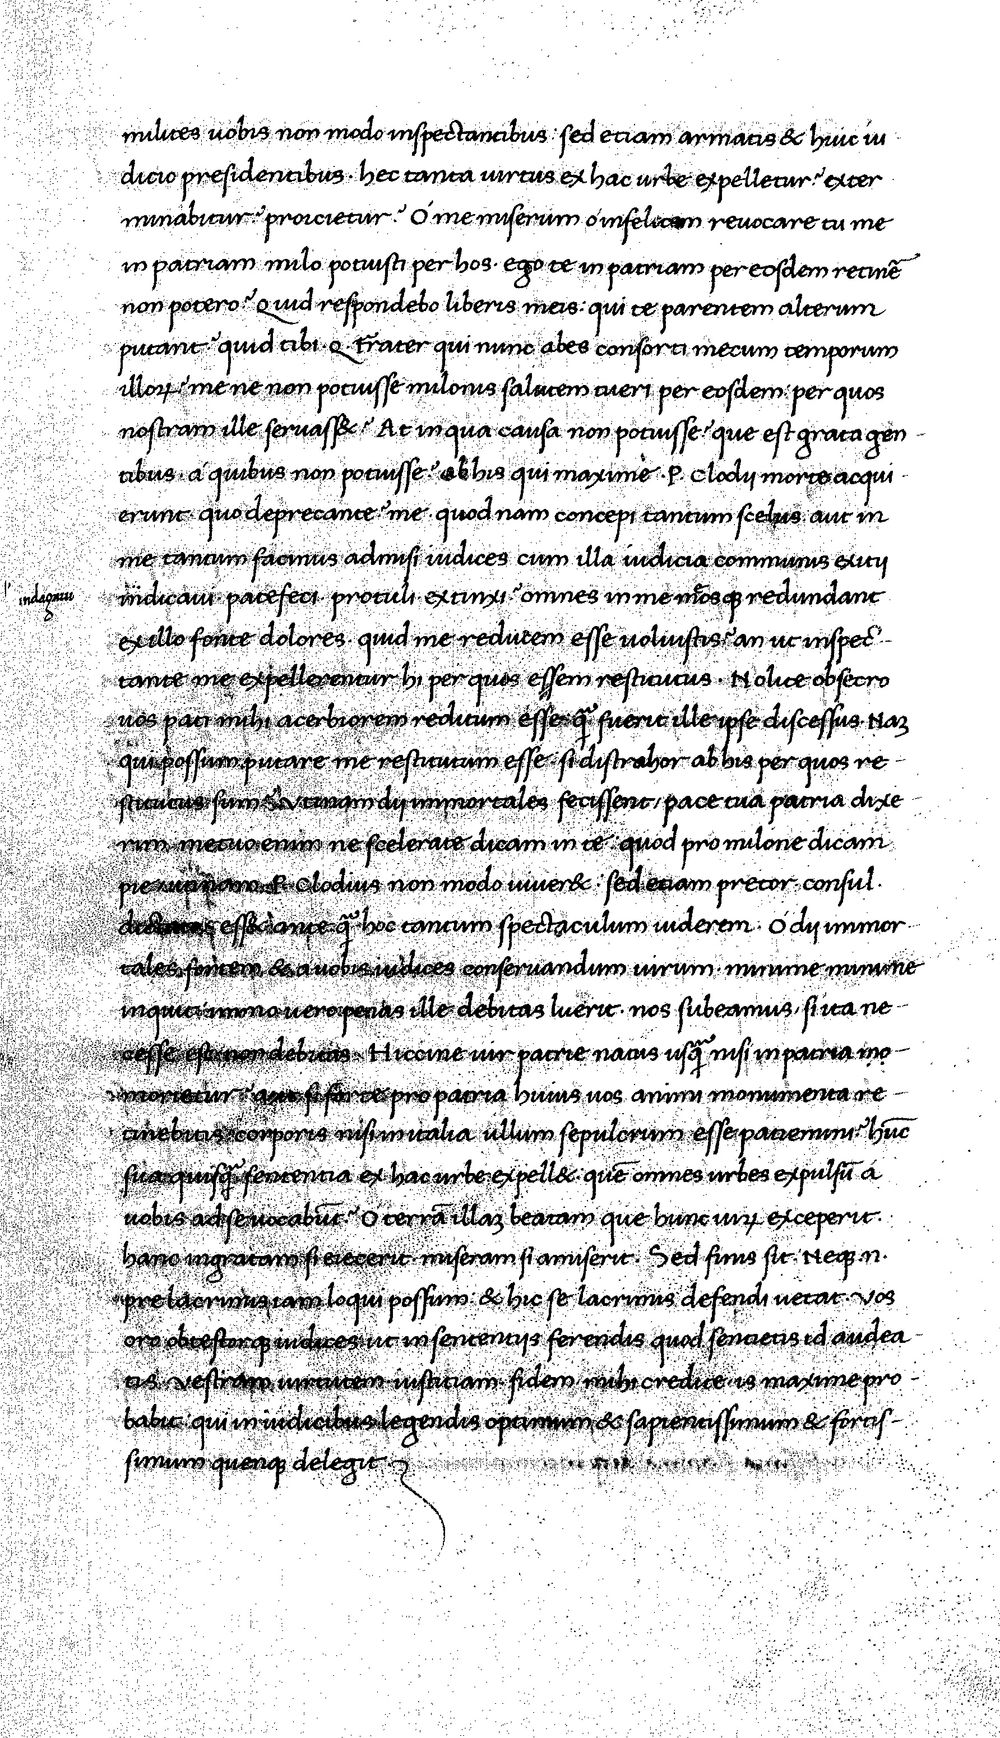 milites uobis non modo inspectantibus sed etiam armatis & huic iu
dicio presidentibus · hec tanta uirtus ex hac urbe expelletur? exter
minabitur? proicietur? O me miserum o infelicem reuocare tu me
in patriam milo potuisti per hos · ego te in patriam per eosdem retinē
non potero? Quid respondebo liberis meis · qui te parentem alterum
putant? quid tibi · Q frater qui nunc abes consorti mecum temporum
illoꝝ? me ne non potuisse milonis salutem tueri per eosdem per quos
nostram ille seruass&? At in qua causa non potuisse? que est grata gen-
tibus · a quibus non potuisse? ab his qui maxime · P. Clodij morte acqui
erunt · quo deprecante? me · quod nam concepi tantum scelus aut in
me tantum facinus admisi iudices cum illa iudicia communis exitij
indicaui · patefeci · protuli extinxi? omnes in me redundant
indagaui
ex illo fonte dolores · quid me reducem esse uoluistis? an ut inspec-
tante me expellerentur hi per quos essem restitutus · Nolite obsecro
uos pati mihi acerbiorem reditum esse qꝫ̄ fuerit ille ipse discessus · Naꝫ
qui possum putare me restitutum esse · si distrahor ab his per quos re-
stitutus sum? Vtinam dij immortales fecissent / pace tua patria dixe-
rim metuo enim ne scelerate dicam in te · quod pro milone dicam
pie utinam P. Clodius non modo uiuer& · sed etiam pretor consul ·
dictator ess& ante qꝫ̄ hoc tantum spectaculum uiderem · O dij immor-
tales fortem & a uobis iudices conseruandum uirum · minime minime
inquit immo uero penas ille debitas luerit · nos subeamus / si ita ne-
cesse est non debitas · Hiccine uir patrie natus usqꝫ̄ nisi in patria mo-
morietur? aut si forte pro patria huius uos animi monumenta re-
tinebitis corporis nisi in italia ullum sepulcrum esse patiemini? hūc
sua quisqꝫ̄ sententia ex hac urbe expell& · quē omnes urbes expulsū a
uobis ad se uocabūt? O terrā illaꝫ beatam que hunc uiꝝ exceperit ·
hanc ingratam si eiecerit · miseram si amiserit · Sed finis sit · Neqꝫ .n.
pre lacrimis iam loqui possum · & hic se lacrimis defendi uetat · Vos
oro obtestorqꝫ iudices ut in sententijs ferendis quod sentietis id audea-
tis · Vestram uirtutem iustitiam fidem mihi credite · is maxime pro-
babit · qui in iudicibus legendis optimum & sapientissimum & fortis-
simum quenqꝫ delegit